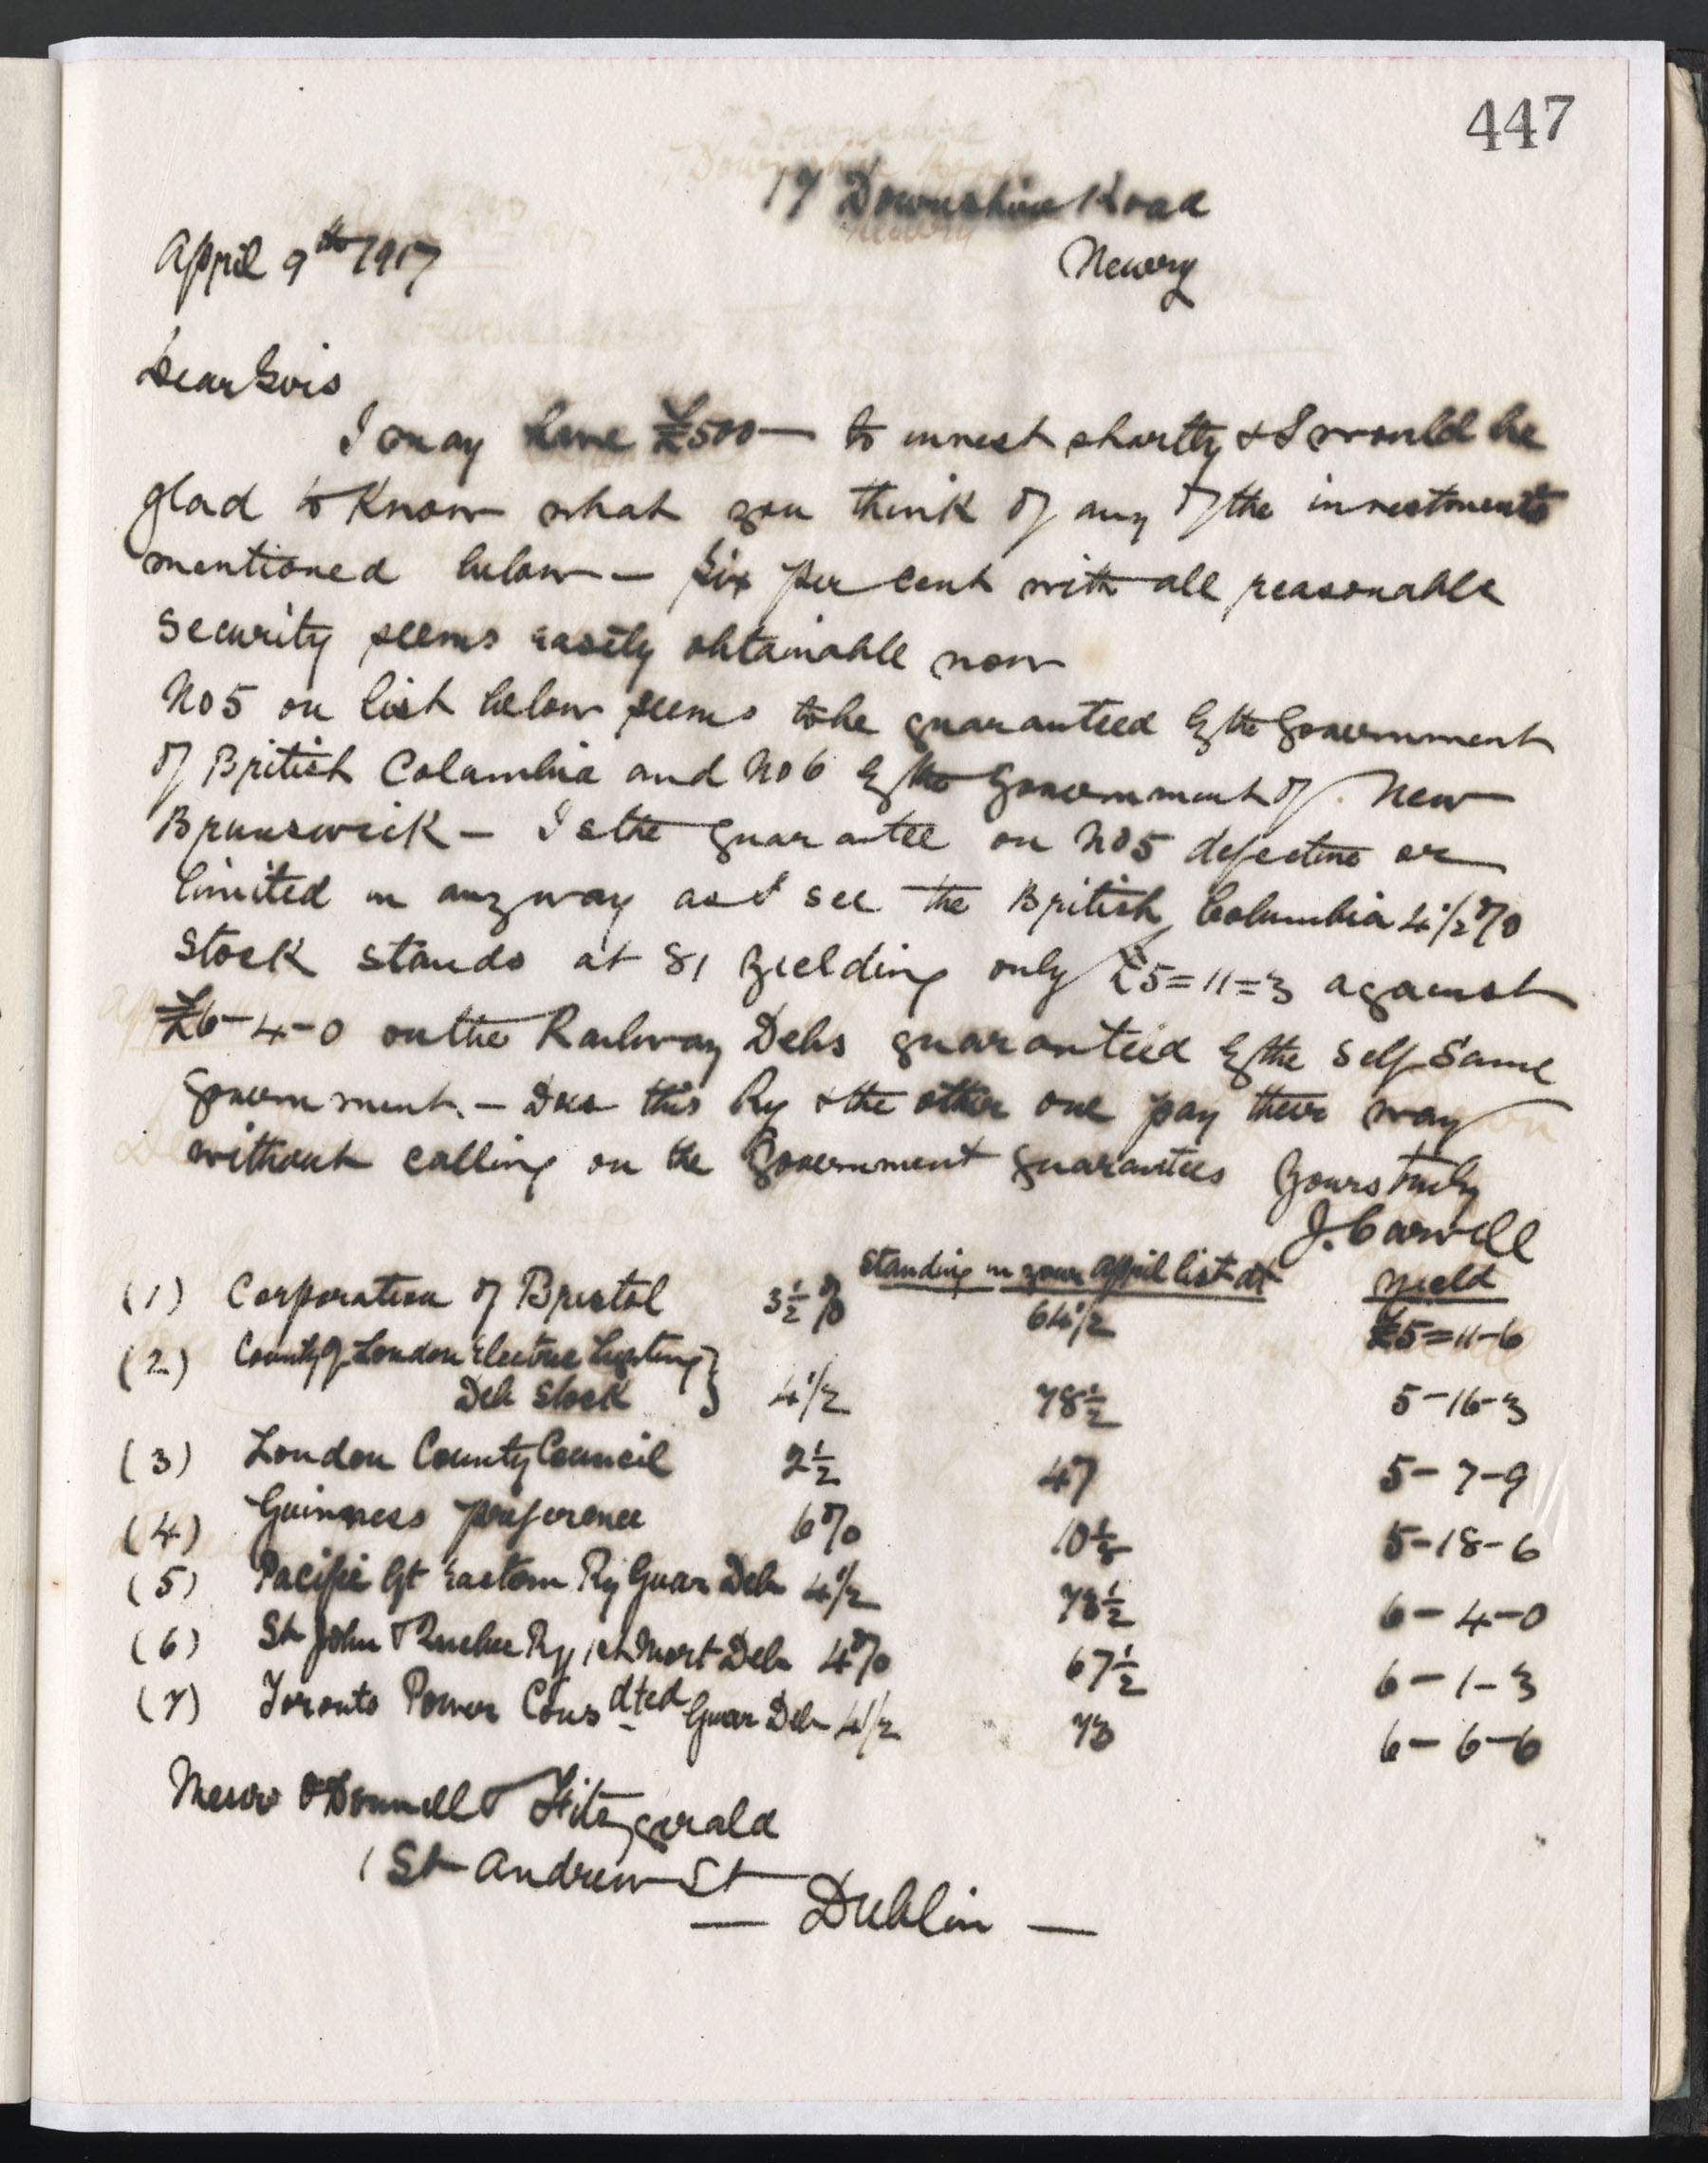 447
17 Downshire Road
April 9th 1917
Newry
Dear Sirs
I may have £500— to invest shortly & I would be
glad to know what you think of any of the investments
mentioned below — Six per cent with all reasonable
security seems easily obtainable now
No 5 on list below seems to be guaranteed by the Government
of British Columbia and No 6 by the Government of New
Brunswick — Is the guarantee on No 5 defective or
limited in any way as I see the British Columbia 4 1/2 %
stock stands at 81 yielding only £5=11=3 against
£6-4-0 on the Railway Debs guaranteed by the self same
Government. — Does this Ry & the other one pay their way
without calling on the Government guarantees Yours truly
J. Carvill
Standing in your April list at Yield
(1) Corporation of Bristol 3 1/2 % 64 1/2 £5=11-6
(2) County of London Electric Lighting }
Deb Stock 4 1/2 78 1/2 5-16-3
(3) London County Council 2 1/2 47 5-7-9
(4) Guinness preference 6% 10 1/8 5-18-6
(5) Pacific Gt Eastern Ry Guar Deb 4 1/2 73 1/2 6-4-0
(6) St John & Quebec Ry 1st Mort Deb 4% 67 1/2 6-1-3
(7) Toronto Power Consdted Guar Deb 4 1/2 73 6-6-6
Messrs O'Donnell & Fitzgerald
1 St Andrew St
— Dublin —